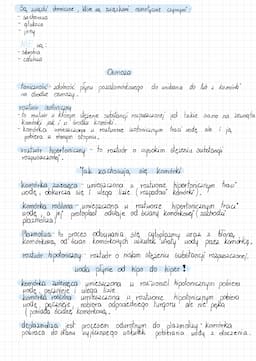 Są związki chemiczne, które są związkami osmotycznie czynnymi:
- sacharoza
- glukoza
- jony
nie są:
- skrobia
- celuloza
Osmoza
toniczność - zdolność płynu pozakomórkowego do wnikania do lub z komórki
na drodze osmozy.
roztwór izotoniczny
- to roztwór w którym stężenie substancji rozpuszczonej jest takie samo na zewnątrz
komórki jak i w środku komórki.
- komórka umieszczona w roztworze izotonicznym traci wodę ale i ją
pobiera w równym stopniu.
roztwór hipertoniczny - to roztwór o wysokim stężeniu substancji
rozpuszczonej.
Jak zachowują się komórki
komórka zwierzęca umieszczona w roztworze hipertonicznym traci
wodę, obkurcza się i ulega lizie
komórka roślinna umieszczona w roztworze hipertonicznym traci
wodę, a jej protoplast odkleja się od ściany komórkowej (zachodzi
plazmoliza)
Plazmoliza - to proces odsuwania się cytoplazmy wraz z błoną
komórkową, od ścian komórkowych wskutek utraty wody przez komórkę.
roztwór hipotoniczny - roztwór o niskim stężeniu substancji rozpuszczonej.
woda płynie od hipo do hiper!
komórka zwierzęca umieszczona w roztworze hipotonicznym pobiera
wodę, pęcznieje i ulega lizie
komórka roślinna umieszczona w roztworze hipotonicznym pobiera
wodę, pęcznieje, nabiera odpowiedniego turgoru, ale nie pęka
(posiada ścianę komórkową).
deplazmoliza jest procesem odwrotnym do plazmolizy - komórka
wodę z otoczenia.